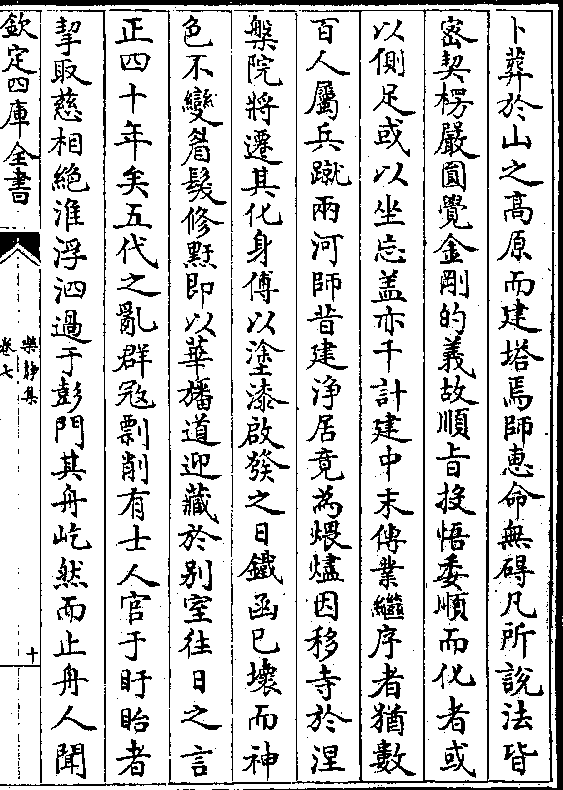 卜葬於山之高原而建塔焉師惠命無碍凡所說法皆
密契楞嚴圓覺金剛的義故順旨投悟委順而化者或
以側足或以坐忘盖亦千計建中末傳業繼序者猶數
百人屬兵蹴兩河師昔建淨居竟為煨燼因移寺於涅
槃院將遷其化身傅以塗漆啟發之日鐵函已壞而神
色不變眉髮修黙即以華旛道迎藏於别室往日之言
正四十年矣五代之亂群冦剽削有士人官于盱眙者
挈取慈相絶淮浮泗過于彭門其舟屹然而止舟人聞
欽定四庫全書
樂靜集
卷七
十